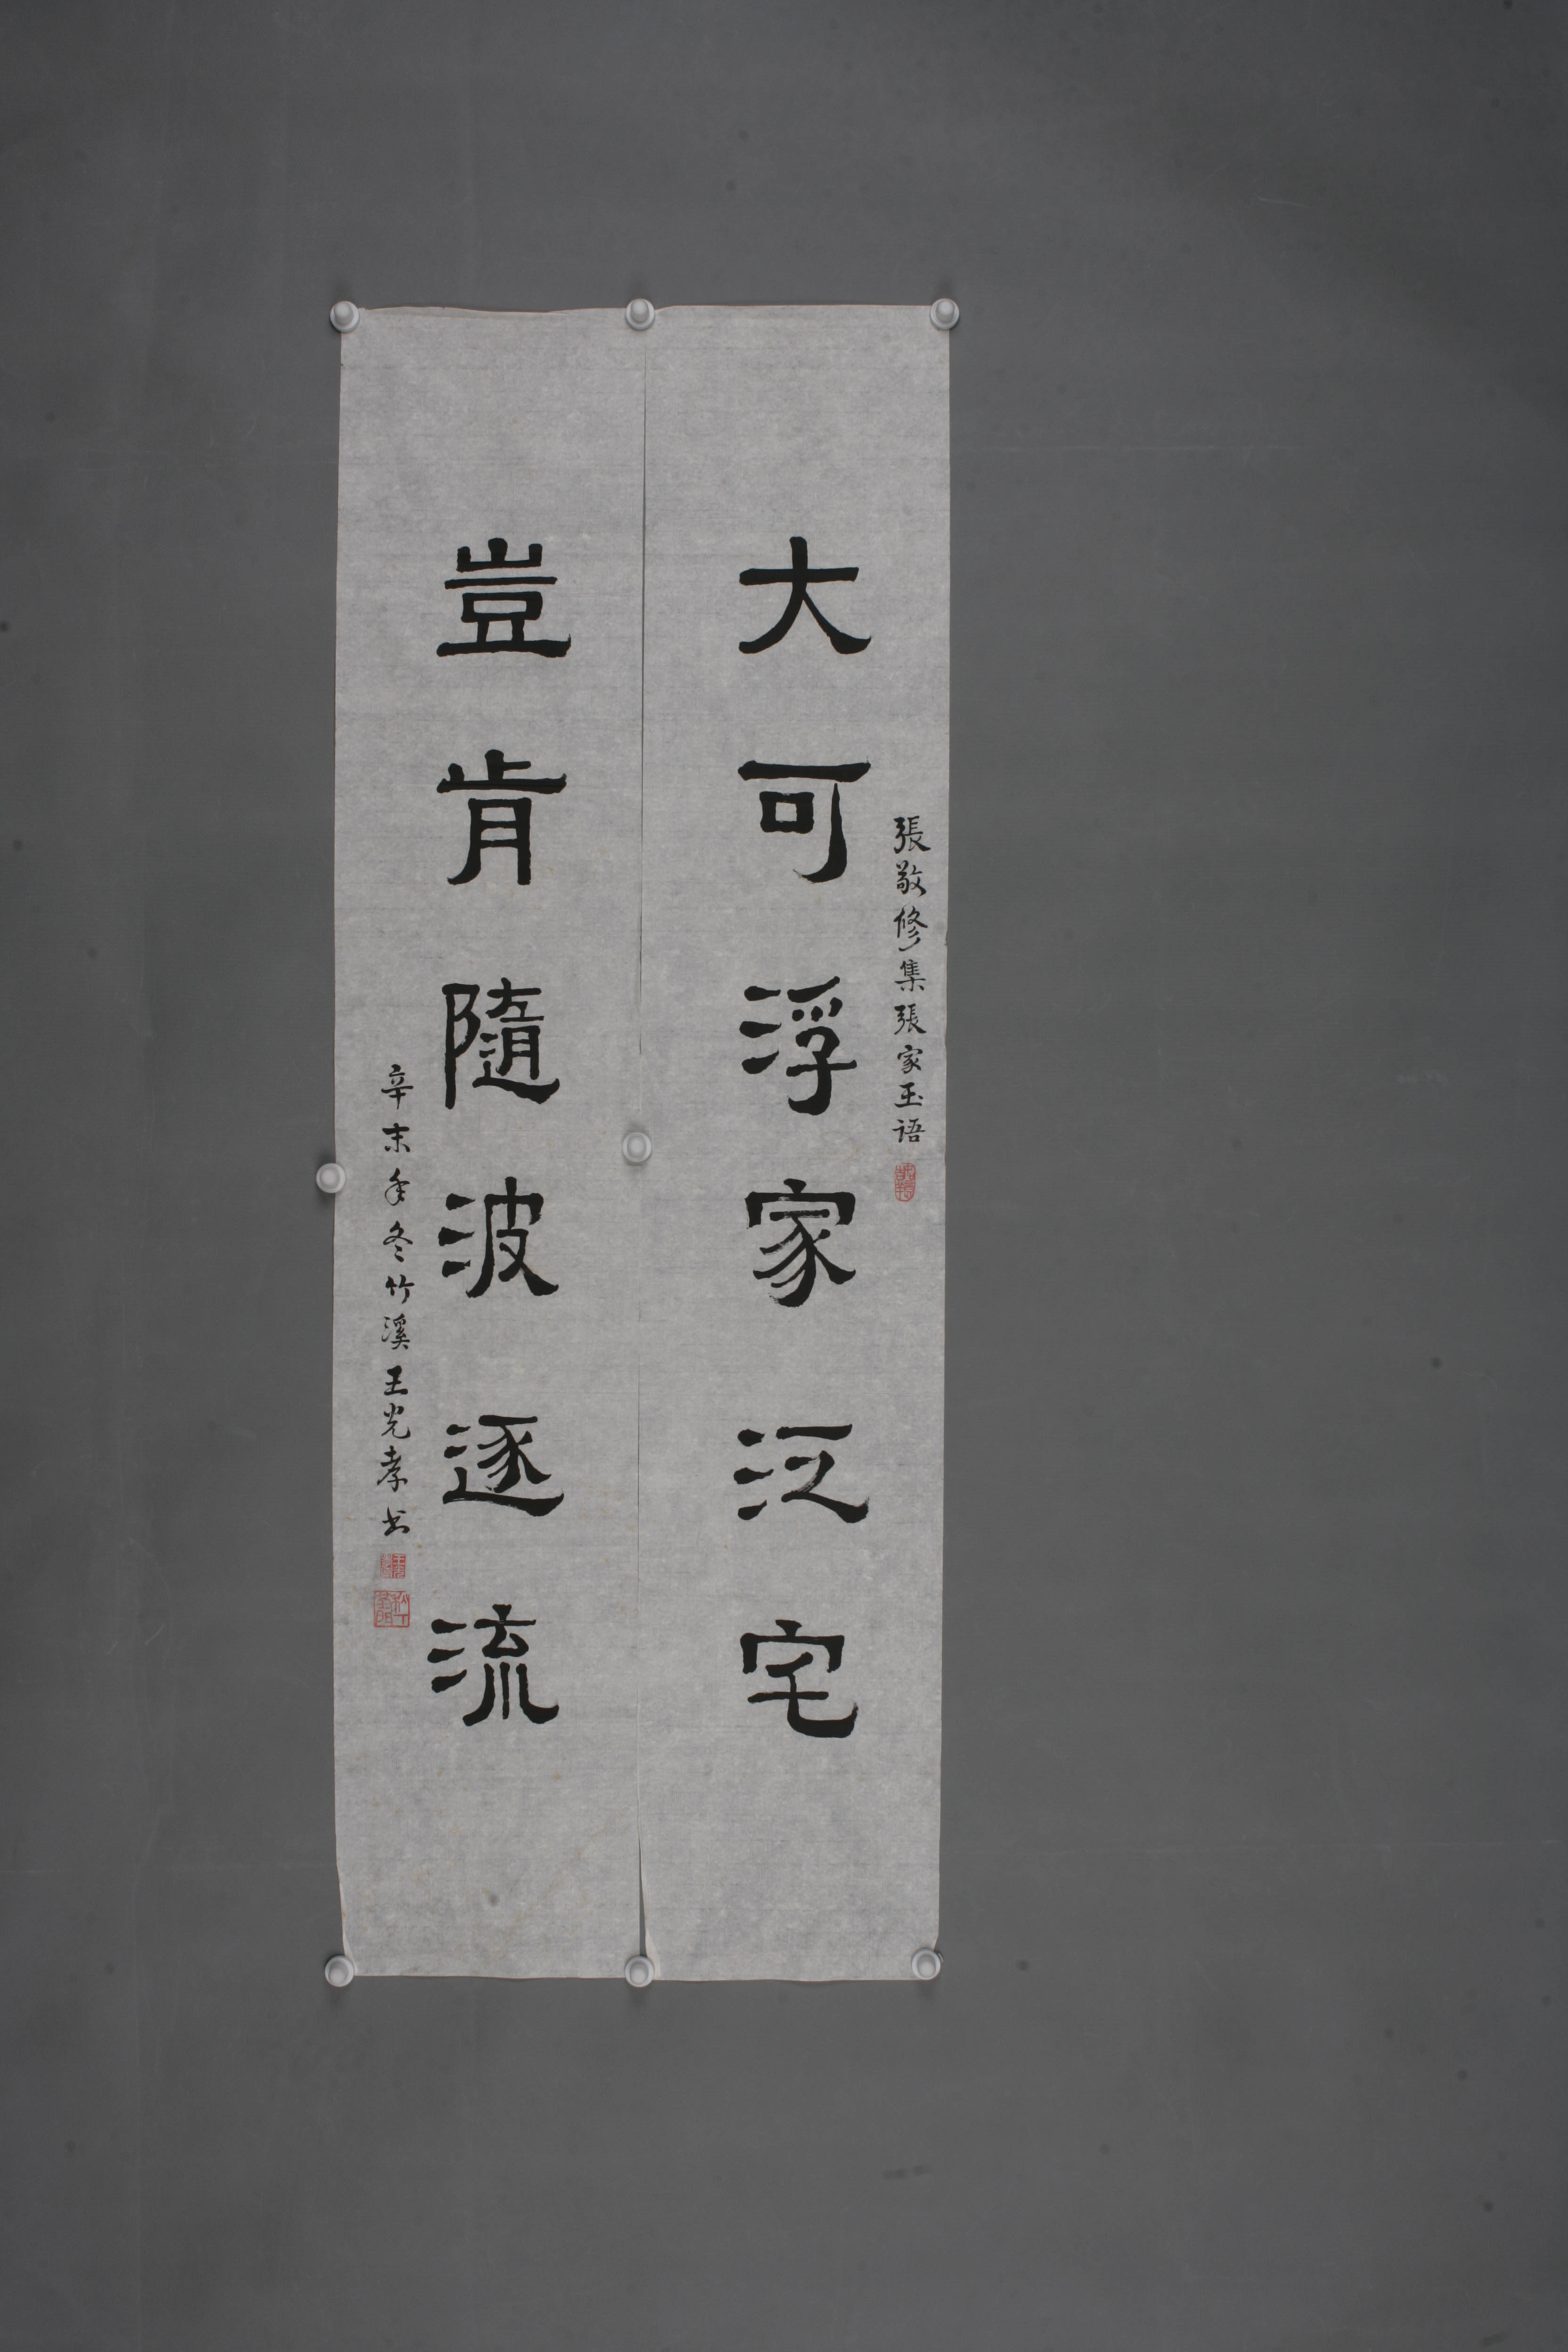 張敬修集張家玉语
大可浮家泛宅
豈肯隨波逐流
辛未年冬竹溪王光孝书